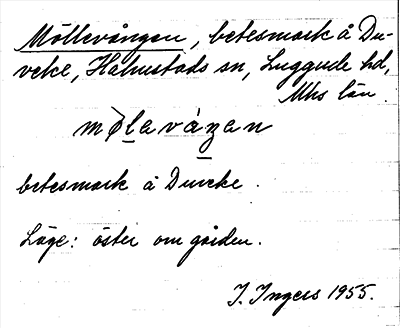 Möllevången, betesmark å Du-
veke, Halmstads sn, Luggude hd,
Mhs län.
møllavåŋan
betesmark å Duveke.
Läge: öster om gården.
I. Ingers 1955.